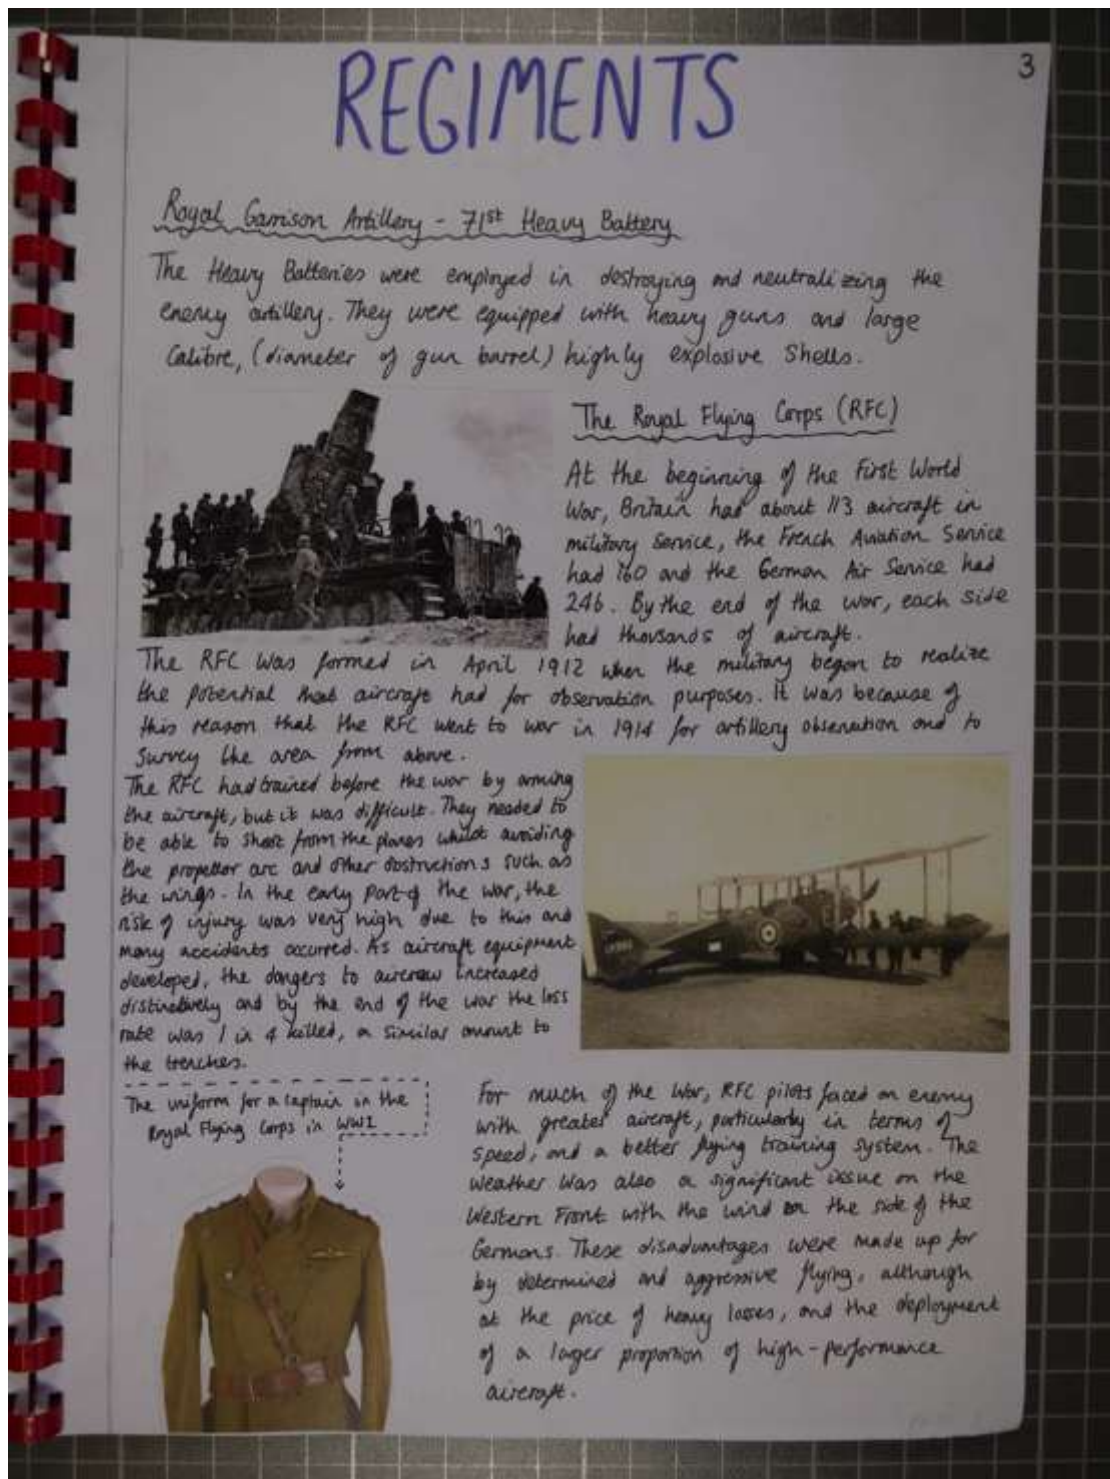 REGIMENTS
3
Royal Garrison Artillery - 71st Heavy Battery
The Heavy Batteries were employed in destroying and neutralizing the
enemy artillery. They were equipped with heavy guns and large
Calibre, (diameter of gun barrel) highly explosive shells.
The Royal Flying Corps (RFC)
At the beginning of the First World
War, Britain had about 113 aircraft in
military service, the French Aviation Service
had 160 and the German Air Service had
246. By the end of the war, each side
had thousands of aircraft.
The RFC was formed in April 1912 when the military began to realize
the potential that aircraft had for observation purposes. It was because of
this reason that the RFC went to war in 1914 for artillery observation and to
survey the area from above.
The RFC had trained before the war by arming
the aircraft, but it was difficult. They needed to
be able to shoot from the planes whilst avoiding
the propellor arc and other obstructions such as
the wings. In the early part of the war, the
risk of injury was very high due to this and
many accidents occurred. As aircraft equipment
developed, the dangers to aircrew increased
distinctively and by the end of the war the loss
rate was 1 in 4 killed, a similar amount to
the trenches.
The uniform for a captain in the
Royal Flying Corps in WW1
For much of the war, RFC pilots faced an enemy
with greater aircraft, particularly in terms of
speed, and a better flying training system. The
weather was also a significant issue on the
Western Front with the wind on the side of the
Germans. These disadvantages were made up for
by determined and aggressive flying, although
at the price of heavy losses, and the deployment
of a larger proportion of high-performance
aircraft.